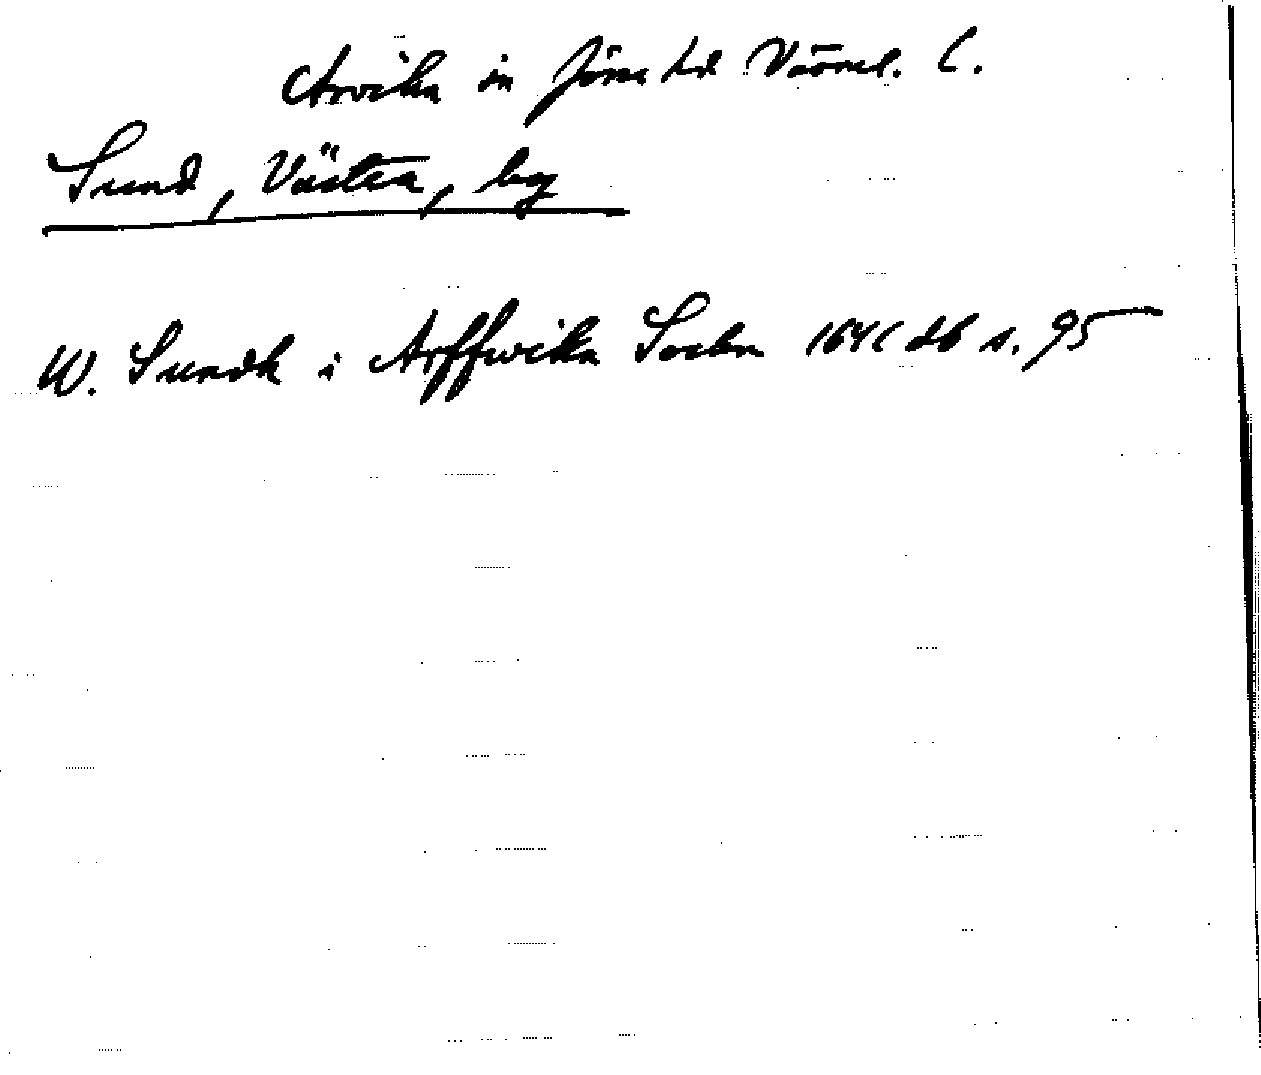 Arvika sn Jösse hd Värml. l.
Sund, Västra, by
W. Sundh i Arffwika Sochn 1641 db s. 95